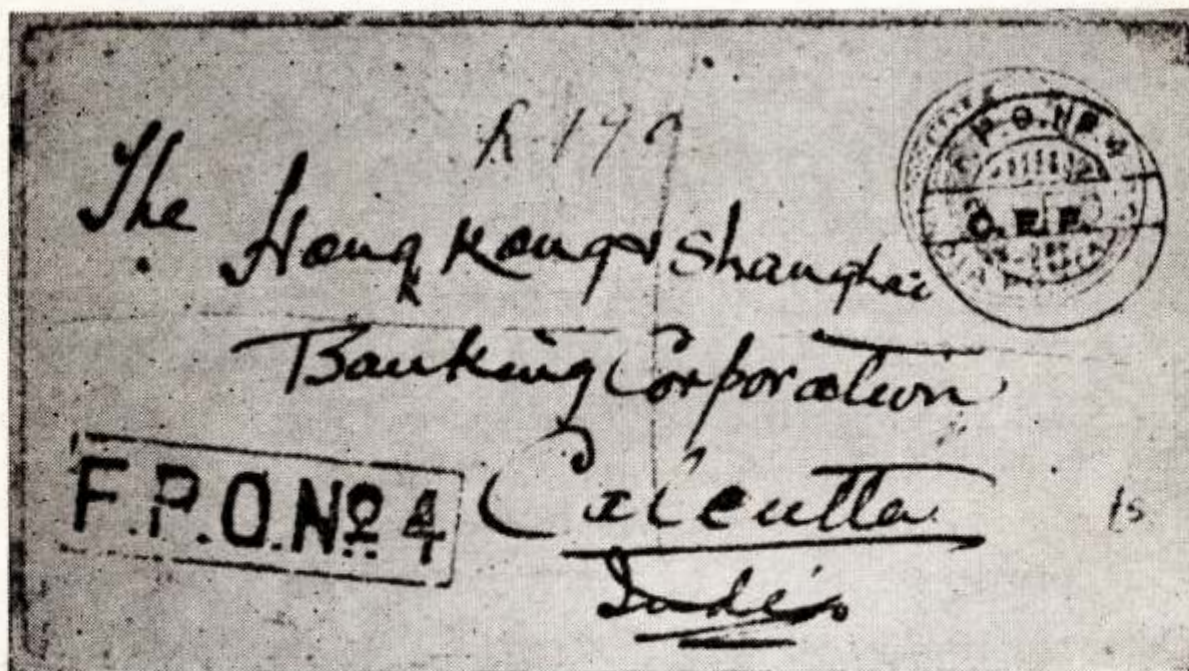 R-197
F.P.O.Nº 4
O.E.F.
The Hong Kong & Shanghai
Banking Corporation
F.P.O.Nº 4
Calcutta
India